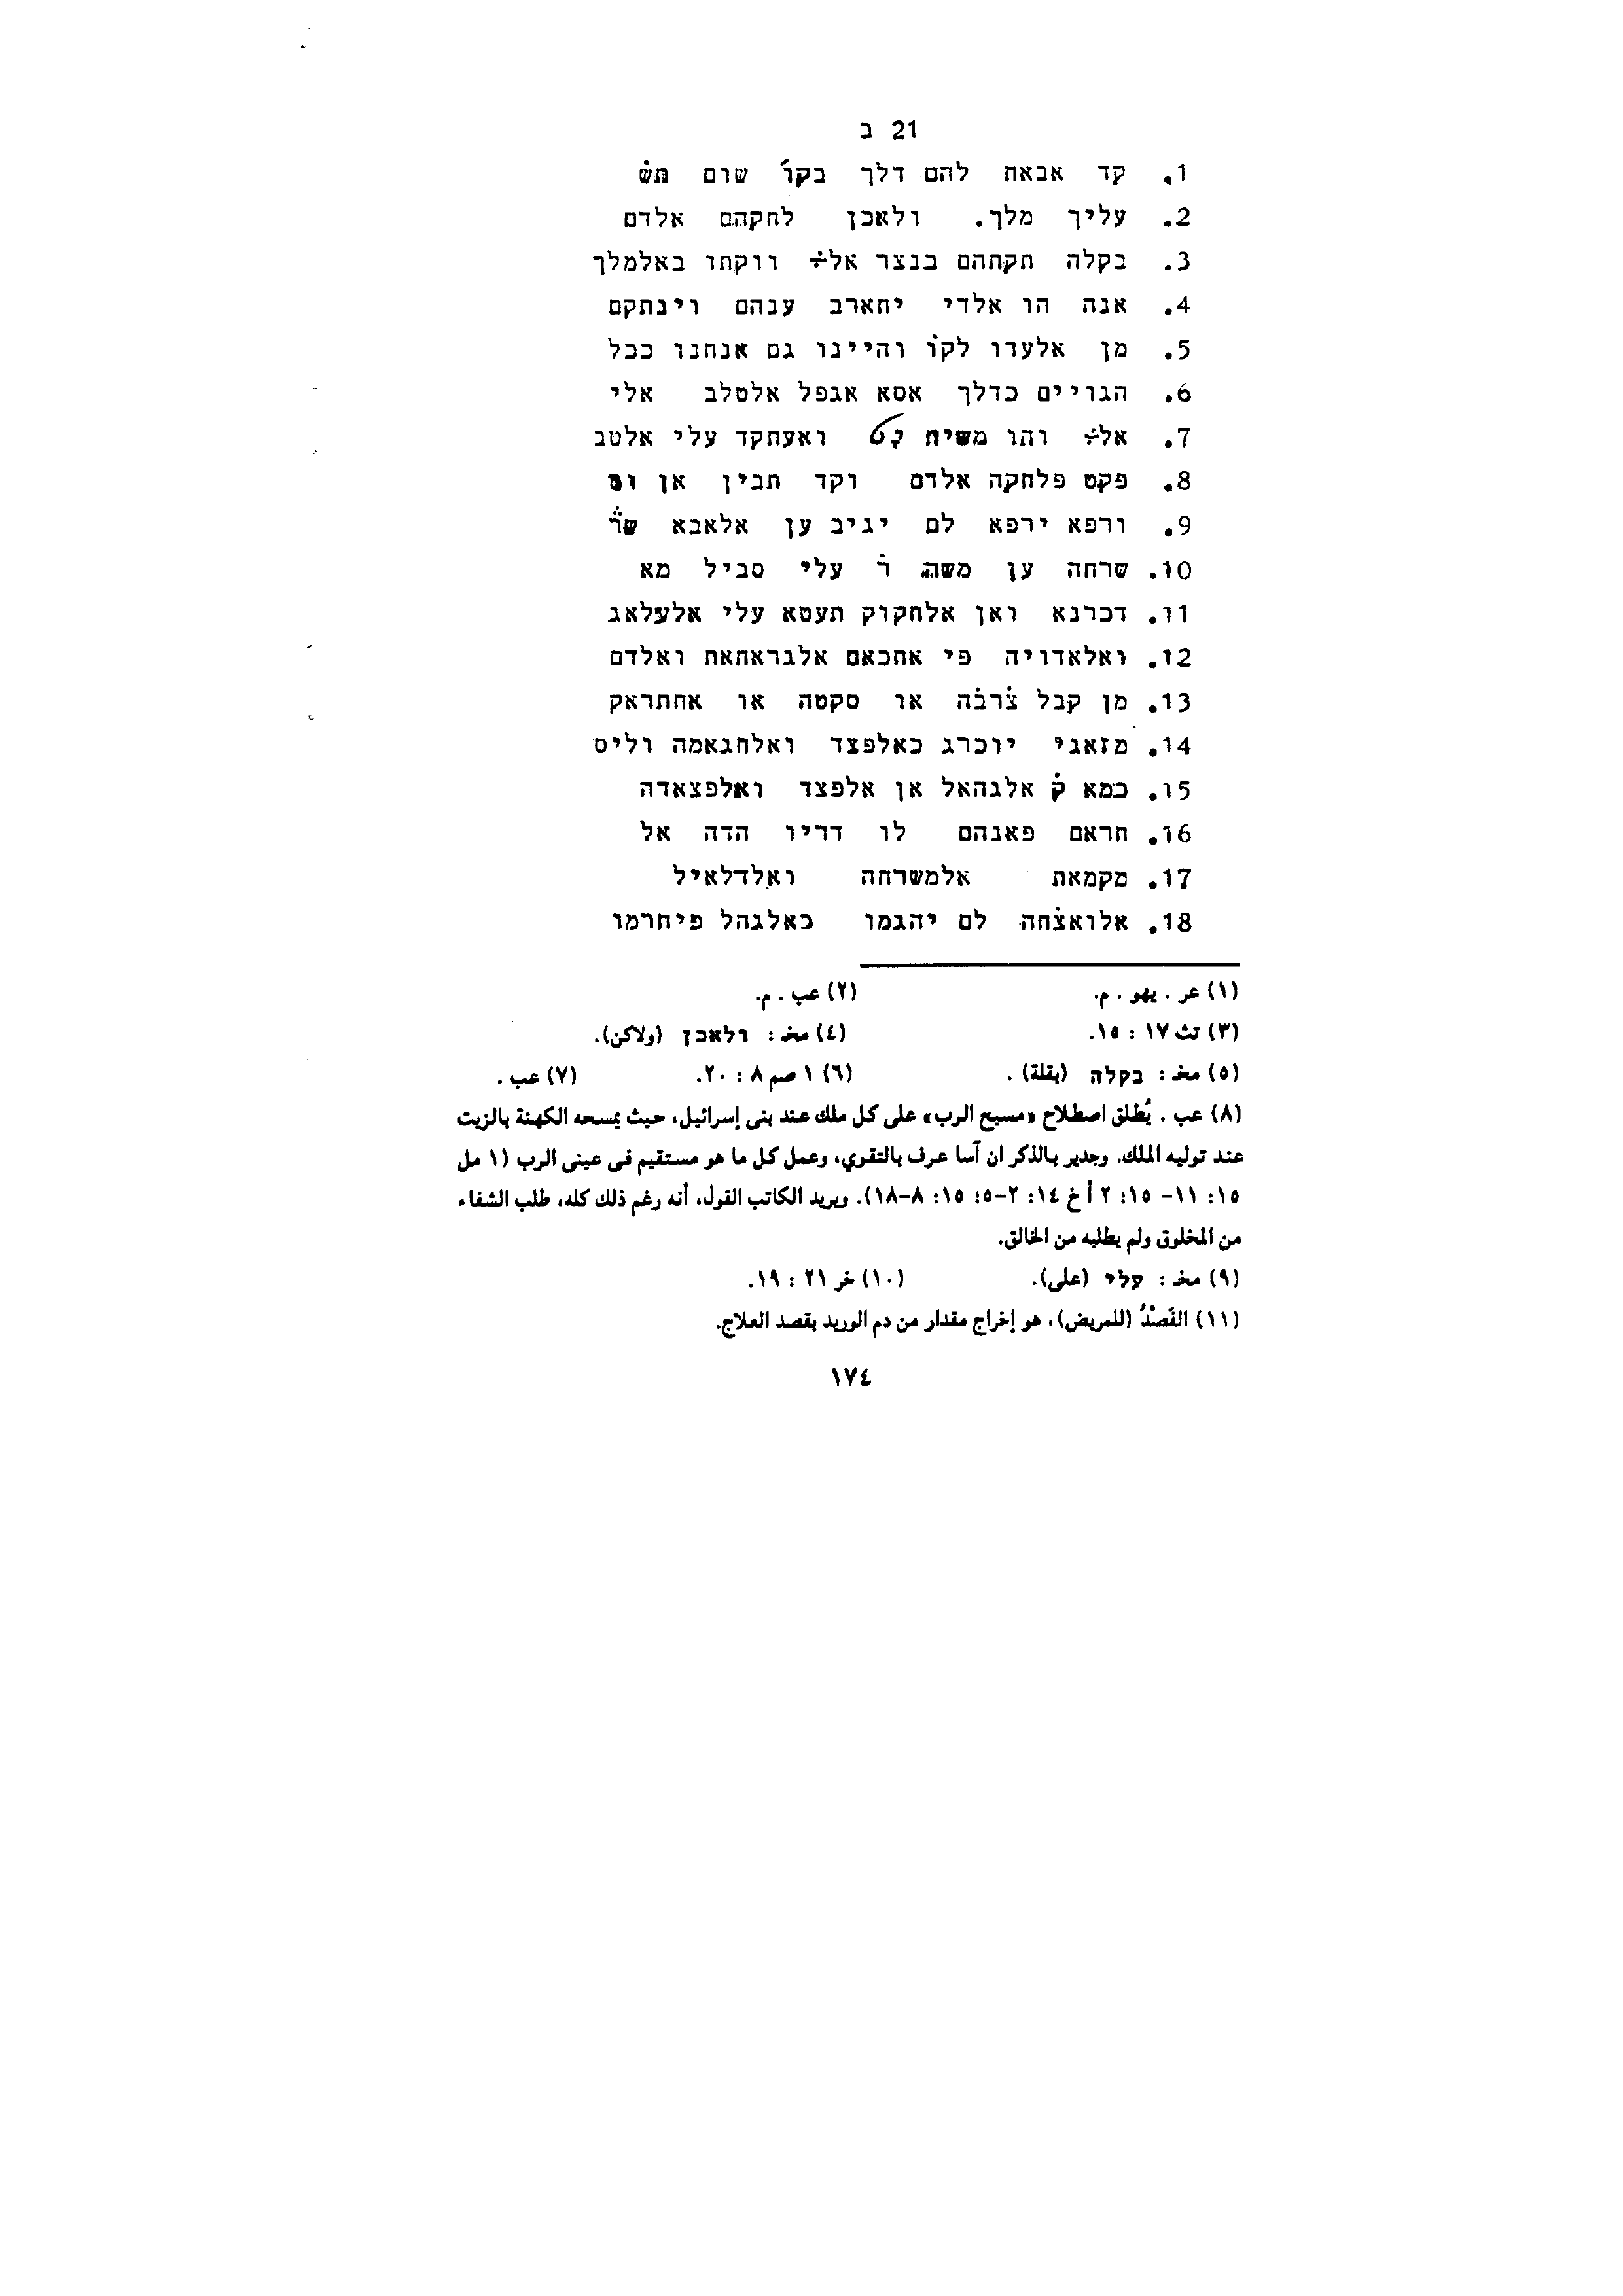 21 ב
1. קד אבאח להם דלך בקו̇ שום תש̇
2. עליך מלך. ולאכן לחקהם אלדם
3. בקלה תקתהם בנצר אל÷ ווקתו באלמלך
4. אנה הו אלדי יחארב ענהם וינתקם
5. מן אלעדו לקו̇ והיינו גם אנחנו ככל
6. הגויים כדלך אסא אגפל אלטלב אלי
7. אל÷ והו משיח ואעתקד עלי אלטב
8. פקט פלחקה אלדם וקד תבין אן
9. ורפא ירפא לם יגיב ען אלאבא
10. שרחה ען משה ר̇ עלי סביל מא
11. דכרנא ואן אלחקוק תעטא עלי אלעלאג
12. ואלאדויה פי אחכאם אלגראחאת ואלדם
13. מן קבל צ̇רבה או סקטה או אחתראק
14. מזאגי יוכרג כאלפצד ואלחגאמה וליס
15. כמא ק̇ אלגהאל אן אלפצד ואלפצאדה
16. חראם פאנהם לו דריו הדה אל
17. מקמאת אלמשרחה ואלדלאיל
18. אלואצ̇חה לם יהגמו כאלגהל פיחרמו
(١) عر . يهو . م. (٢) عب . م.
(٣) تث ١٧ : ١٥. (٤) مخـ : ולאכן (ولاكن).
(٥) مخـ : בקלה (بقلة) . (٦) ١ صم ٨ : ٢٠. (٧) عب .
(٨) عب . يُطلق اصطلاح «مسيح الرب» على كل ملك عند بنى إسرائيل، حيث يمسحه الكهنة بالزيت
عند توليه الملك. وجدير بالذكر ان آسا عرف بالتقوي، وعمل كل ما هو مستقيم فى عينى الرب (١ مل
١٥: ١١- ١٥؛ ٢ أ خ ١٤: ٢-٥؛ ١٥: ٨-١٨). ويريد الكاتب القول، أنه رغم ذلك كله، طلب الشفاء
من المخلوق ولم يطلبه من الخالق.
(٩) مخـ : עלי (على). (١٠) خر ٢١ : ١٩.
(١١) الفَصْدُ (للمريض)، هو إخراج مقدار من دم الوريد بقصد العلاج.
١٧٤